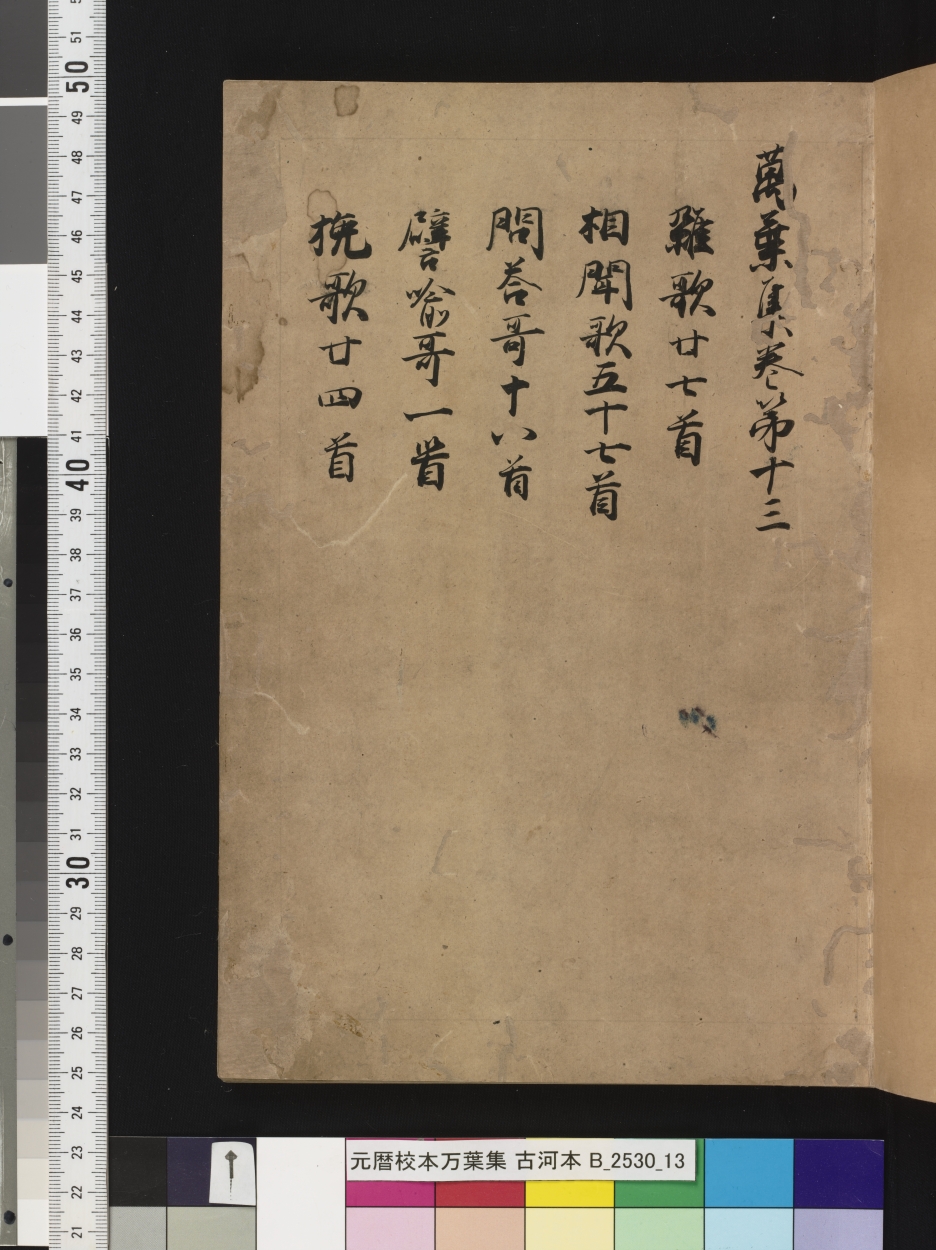 萬葉集巻第十三
雜歌廿七首
相聞歌五十七首
問荅哥十八首
譬喻哥一首
挽歌廿四首
元暦校本万葉集 古河本 B_2530_13
51
50
49
48
47
46
45
44
43
42
41
40
39
38
37
36
35
34
33
32
31
30
29
28
27
26
25
24
23
22
21